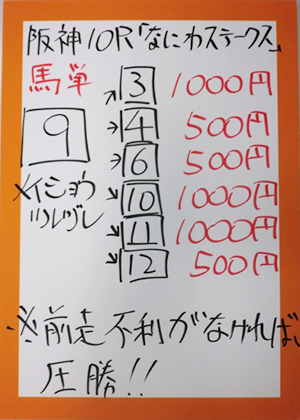 阪神10R「なにわステークス」
馬単
→3 1000円
9 →4 500円
→6 500円
メイショウ
ツレヅレ
→10 1000円
→11 1000円
→12 500円
※前走不利がなければ、
圧勝!!